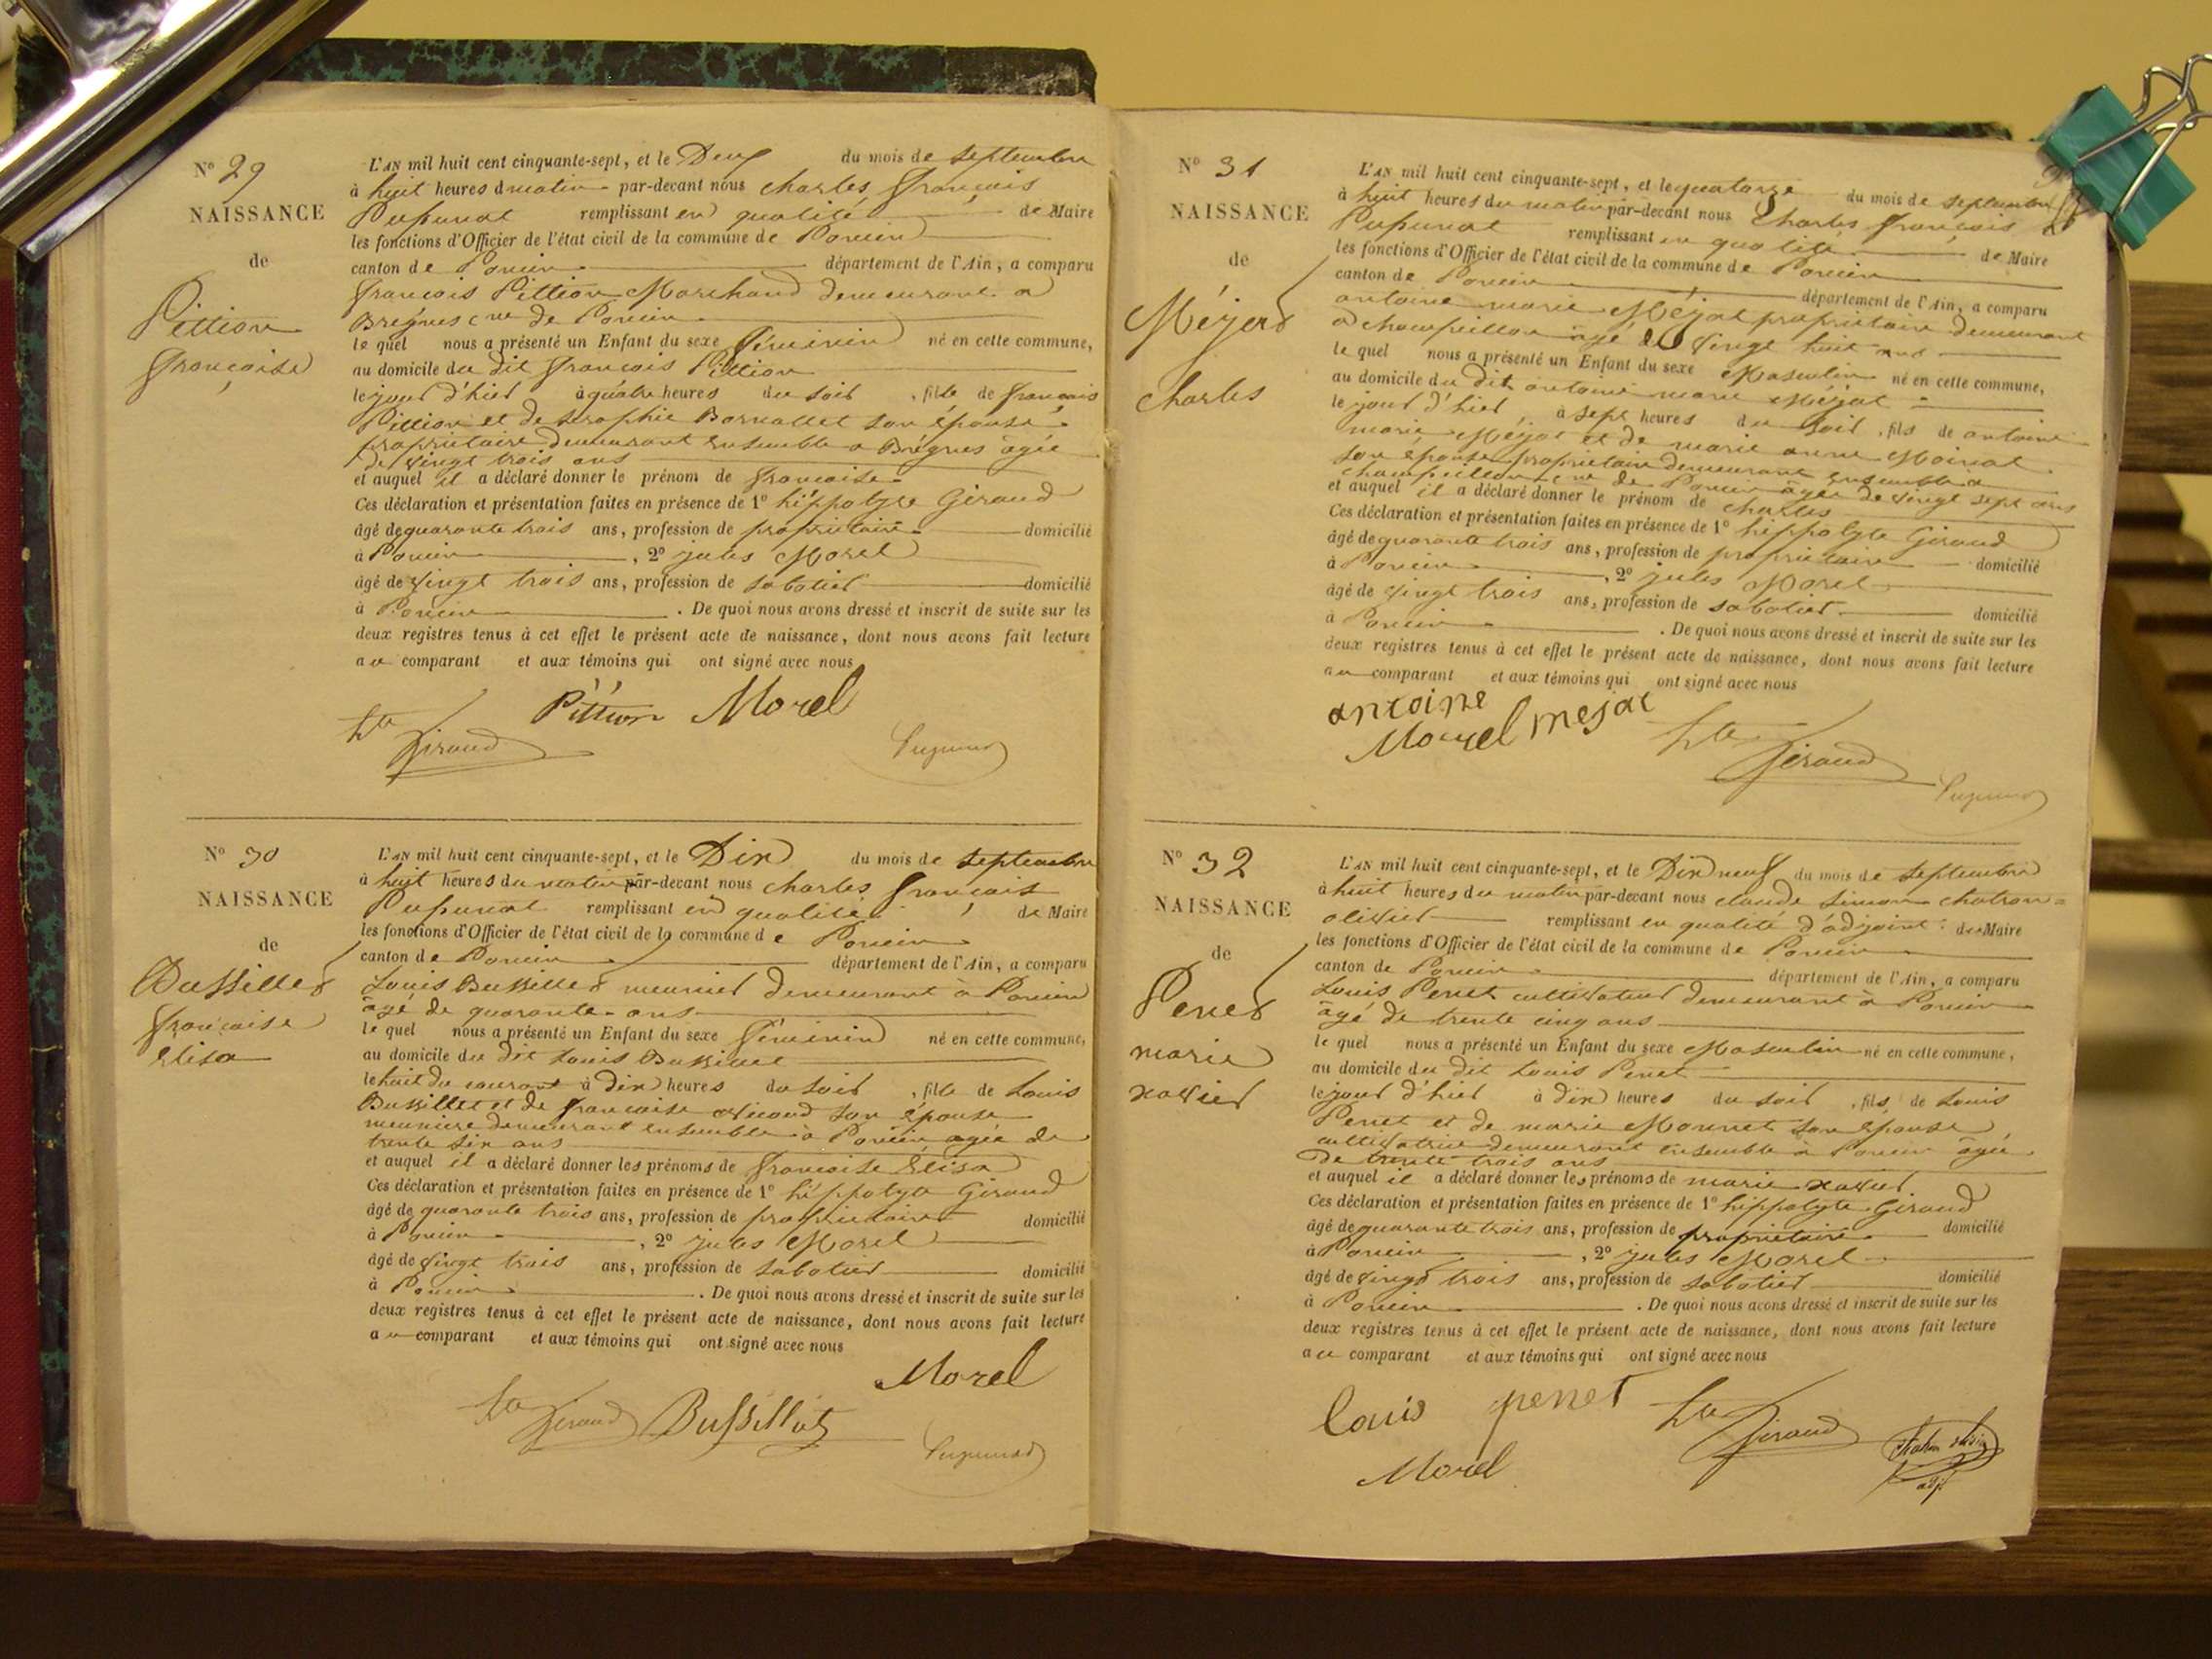 N° 29
NAISSANCE
de
Pittion
françoise
L'AN mil huit cent cinquante-sept, et le Deux du mois de septembre
à huit heures du matin par-devant nous charles françois
Pupunat remplissant en qualité de Maire
les fonctions d'Officier de l'état civil de la commune de Poncin
canton de Poncin département de l'Ain, a comparu
françois Pittion Marchand demeurant a
Brégnes cne de Poncin
le quel nous a présenté un Enfant du sexe féminin né en cette commune,
au domicile du dit françois Pittion
le jour d'hier à quatre heures du soir, fille de françois
Pittion et de Séraphie Bornallet son épouse
propriétaire demeurant ensemble a Brégnes agée
de vingt trois ans
et auquel il a déclaré donner le prénom de françoise
Ces déclaration et présentation faites en présence de 1° hippolyte Giraud
âgé de quarante trois ans, profession de propriétaire domicilié
à Poncin, 2° jules Morel
âgé de vingt trois ans, profession de sabotier domicilié
à Poncin. De quoi nous avons dressé et inscrit de suite sur les
deux registres tenus à cet effet le présent acte de naissance, dont nous avons fait lecture
au comparant et aux témoins qui ont signé avec nous
Pittion Morel
hte Giraud Pupunat
N° 30
NAISSANCE
de
Bussillet
françoise
Elisa
L'AN mil huit cent cinquante-sept, et le Dix du mois de septembre
à huit heures du matin par-devant nous charles françois
Pupunat remplissant en qualité de Maire
les fonctions d'Officier de l'état civil de la commune de Poncin
canton de Poncin département de l'Ain, a comparu
Louis Bussillet meunier demeurant à Poncin
âgé de quarante ans
le quel nous a présenté un Enfant du sexe féminin né en cette commune,
au domicile du dit Louis Bussillet
le huit du courant à dix heures du soir, fille de Louis
Bussillet et de françoise son épouse
meunière demeurant ensemble à Poncin agée de
trente six ans
et auquel il a déclaré donner les prénoms de françoise Elisa
Ces déclaration et présentation faites en présence de 1° hippolyte Giraud
âgé de quarante trois ans, profession de propriétaire domicilié
à Poncin, 2° jules Morel
âgé de vingt trois ans, profession de sabotier domicilié
à Poncin. De quoi nous avons dressé et inscrit de suite sur les
deux registres tenus à cet effet le présent acte de naissance, dont nous avons fait lecture
au comparant et aux témoins qui ont signé avec nous
Morel
hte Giraud Bussillet Pupunat
N° 31
NAISSANCE
de
Méjat
charles
L'AN mil huit cent cinquante-sept, et le quatorze du mois de septembre
à huit heures du matin par-devant nous Charles françois
Pupunat remplissant en qualité de Maire
les fonctions d'Officier de l'état civil de la commune de Poncin
canton de Poncin département de l'Ain, a comparu
antoine marie Méjat propriétaire demeurant
a champeillon âgé de vingt huit ans
le quel nous a présenté un Enfant du sexe Masculin né en cette commune,
au domicile du dit antoine marie Méjat
le jour d'hier, à sept heures du soir, fils de antoine
marie Méjat et de marie anne Moinat
son épouse propriétaire demeurant ensemble a
champeillon cne de Poncin âgée de vingt sept ans
et auquel il a déclaré donner le prénom de charles
Ces déclaration et présentation faites en présence de 1° hippolyte Giraud
âgé de quarante trois ans, profession de propriétaire domicilié
à Poncin, 2° jules Morel
âgé de vingt trois ans, profession de sabotier domicilié
à Poncin. De quoi nous avons dressé et inscrit de suite sur les
deux registres tenus à cet effet le présent acte de naissance, dont nous avons fait lecture
au comparant et aux témoins qui ont signé avec nous
antoine
Morel mejat hte Giraud
Pupunat
N° 32
NAISSANCE
de
Penet
marie
xavier
L'AN mil huit cent cinquante-sept, et le Dix neuf du mois de septembre
à huit heures du matin par-devant nous claude simon chatron
olivier remplissant en qualité d'adjoint de Maire
les fonctions d'Officier de l'état civil de la commune de Poncin
canton de Poncin département de l'Ain, a comparu
Louis Penet cultivateur demeurant à Poncin
âgé de trente cinq ans
le quel nous a présenté un Enfant du sexe Masculin né en cette commune,
au domicile du dit Louis Penet
le jour d'hier à dix heures du soir, fils de Louis
Penet et de marie Monnet son épouse
cultivatrice demeurant ensemble à Poncin âgée
de trente trois ans
et auquel il a déclaré donner les prénoms de marie xavier
Ces déclaration et présentation faites en présence de 1° hippolyte Giraud
âgé de quarante trois ans, profession de propriétaire domicilié
à Poncin, 2° jules Morel
âgé de vingt trois ans, profession de sabotier domicilié
à Poncin. De quoi nous avons dressé et inscrit de suite sur les
deux registres tenus à cet effet le présent acte de naissance, dont nous avons fait lecture
au comparant et aux témoins qui ont signé avec nous
louis penet hte Giraud
Morel adjt